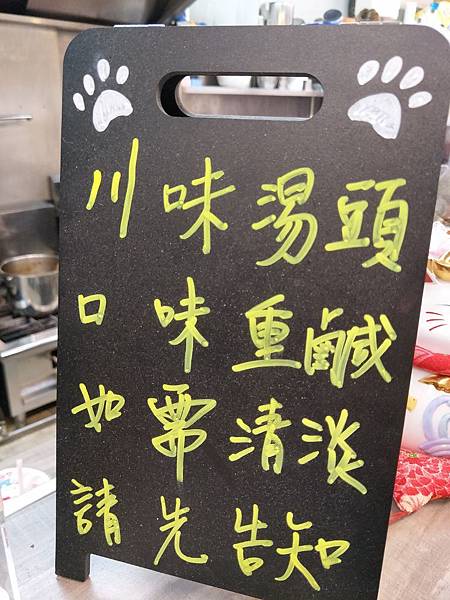 川味湯頭
口味重鹹
如需清淡
請先告知